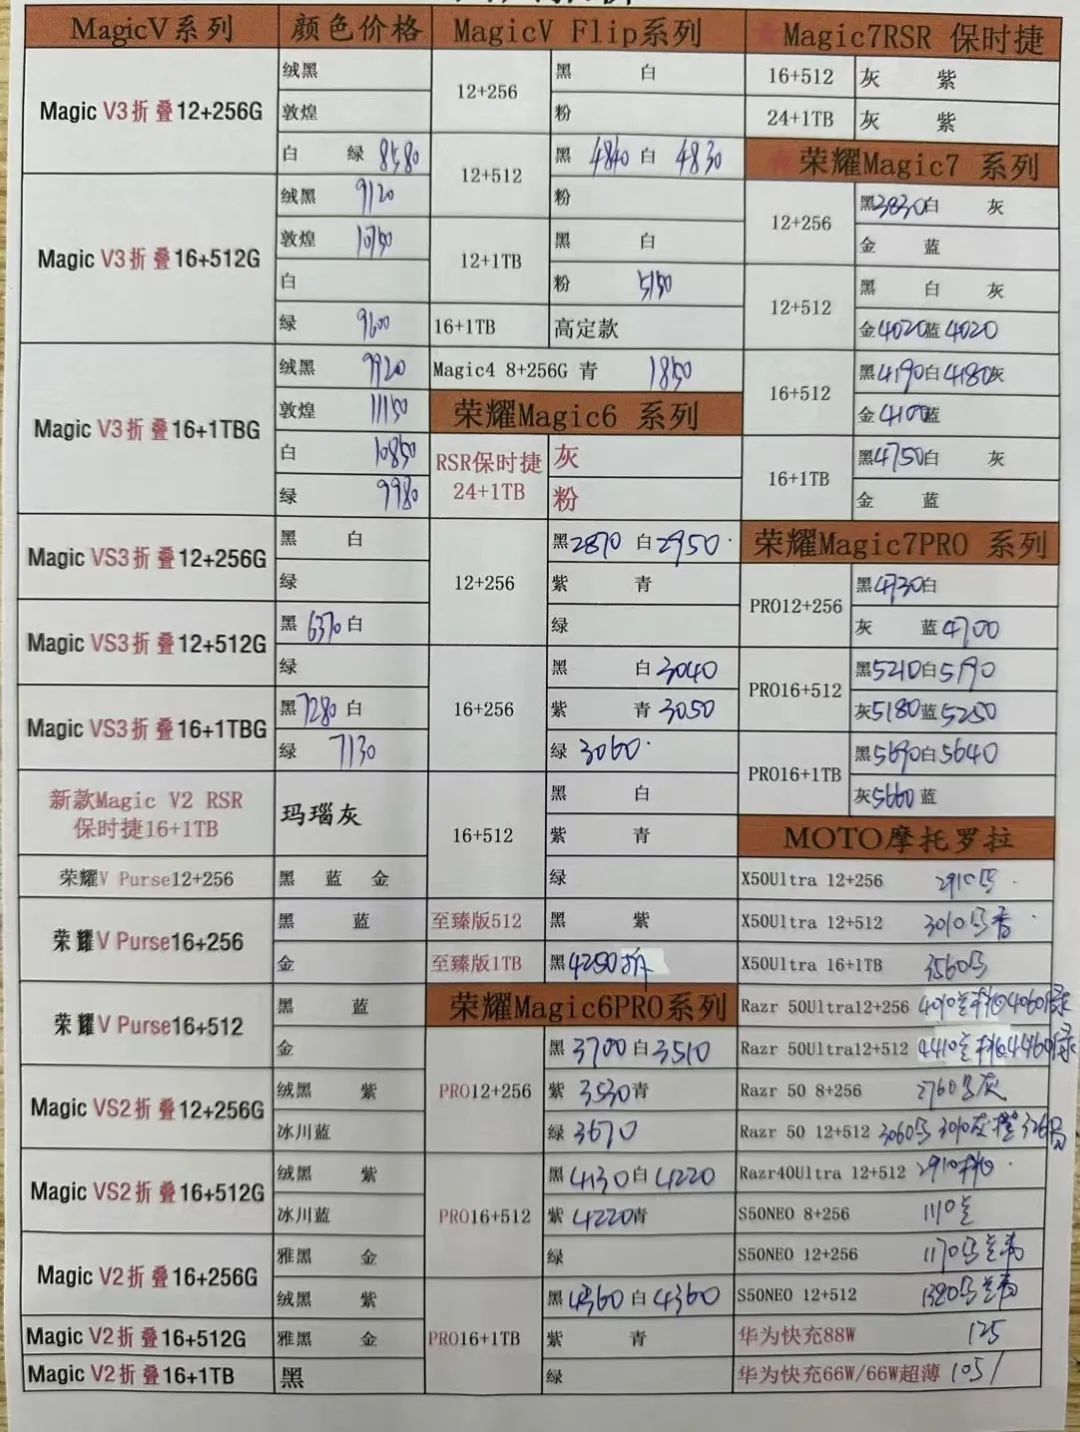 MagicV系列 颜色价格
Magic V3折叠12+256G 绒黑
敦煌
白 绿 8580
Magic V3折叠16+512G 绒黑 9120
敦煌 10750
白
绿 9600
Magic V3折叠16+1TBG 绒黑 9920
敦煌 11150
白 10850
绿 9980
Magic VS3折叠12+256G 黑 白
绿
Magic VS3折叠12+512G 黑 6370 白
绿
Magic VS3折叠16+1TBG 黑 7280 白
绿 7130
新款Magic V2 RSR
保时捷16+1TB 玛瑙灰
荣耀V Purse12+256 黑 蓝 金
荣耀V Purse16+256 黑 蓝
金
荣耀V Purse16+512 黑 蓝
金
Magic VS2折叠12+256G 绒黑 紫
冰川蓝
Magic VS2折叠16+512G 绒黑 紫
冰川蓝
Magic V2折叠16+256G 雅黑 金
绒黑 紫
Magic V2折叠16+512G 雅黑 金
Magic V2折叠16+1TB 黑
MagicV Flip系列
12+256 黑 白
粉
12+512 黑 4840 白 4830
粉
12+1TB 黑 白
粉 5150
16+1TB 高定款
Magic4 8+256G 青 1850
荣耀Magic6 系列
RSR保时捷
24+1TB 灰
粉
12+256 黑2870 白2950
紫 青
绿
16+256 黑 白3040
紫 青3050
绿 3060
16+512 黑 白
紫 青
绿
至臻版512 黑 紫
至臻版1TB 黑4250拆
荣耀Magic6PRO系列
PRO12+256 黑 3700 白3510
紫 3530青
绿 3670
PRO16+512 黑 4130白 4220
紫 4220青
绿
PRO16+1TB 黑4360 白 4360
紫 青
绿
★Magic7RSR 保时捷
16+512 灰 紫
24+1TB 灰 紫
★荣耀Magic7 系列
12+256 黑3830白 灰
金 蓝
12+512 黑 白 灰
金4020蓝 4020
16+512 黑4190白4180灰
金4100蓝
16+1TB 黑4750白 灰
金 蓝
荣耀Magic7PRO 系列
PRO12+256 黑4730白
灰 蓝4700
PRO16+512 黑5210白5190
灰5180蓝5250
PRO16+1TB 黑5690白5640
灰5660蓝
MOTO摩托罗拉
X50Ultra 12+256 2910
X50Ultra 12+512 3010
X50Ultra 16+1TB 3560
Razr 50Ultra12+256 4010 4060绿
Razr 50Ultra12+512 4410 4460绿
Razr 50 8+256 2760 灰
Razr 50 12+512 3060 3010灰
Razr40Ultra 12+512 2910
S50NEO 8+256 1110
S50NEO 12+256 1170
S50NEO 12+512 1380
华为快充88W 125
华为快充66W/66W超薄 105